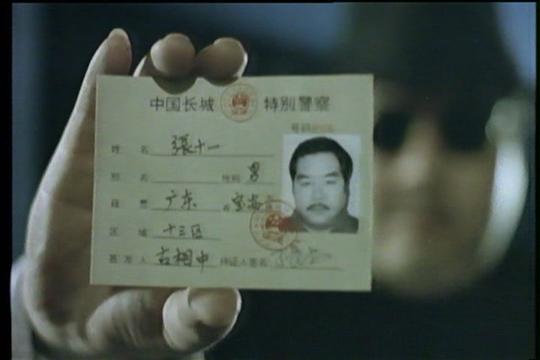 中国长城 特别警察
号码
姓名 張十一
别名 性别 男
籍贯 广东 省 宝安
区域 十三区
签发人 古相中 持证人签名